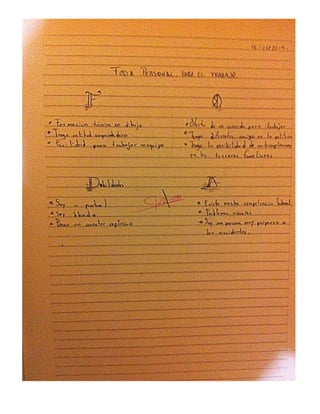 FODA PERSONAL, PARA EL TRABAJO
F
O
• Formación técnica en dibujo
• Tengo actitud emprendedora
• Facilidad para trabajar en equipo
• Oferta de un conocido para trabajar
• Tengo diferentes amigos en la política
• Tengo la posibilidad de
en los terrenos familiares
Debilidades
A
• Soy puntual
• Soy
• Poseo un carácter explosivo
• Existe mucha competencia laboral
• Problemas visuales
• Soy una persona muy propensa a
los accidentes.